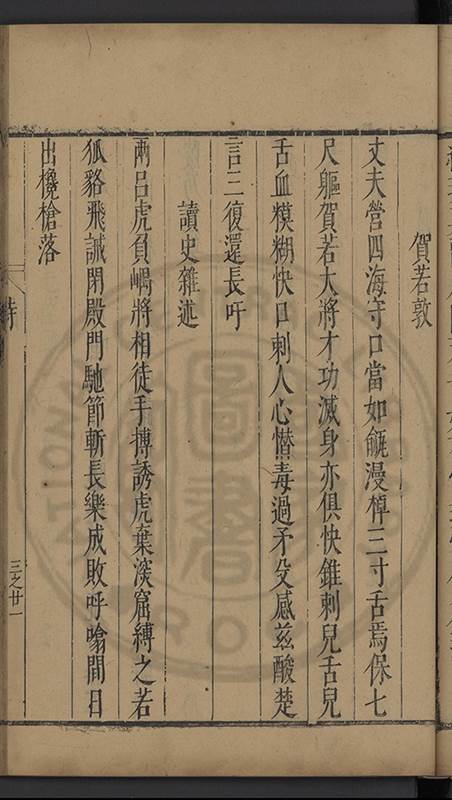 賀若敦
丈夫營四海守口當如甁漫棹三寸舌焉保七
尺軀賀若大將才功滅身亦俱快錐刺兒舌兒
舌血糢糊快口刺人心憯毒過矛殳感茲酸楚
言三復還長吁
讀史雜述
兩呂虎負嵎將相徒手搏誘虎棄深窟縛之若
狐貉飛誠閉殿門馳節斬長樂成敗呼噏間日
出欃槍落
詩
三之廿一